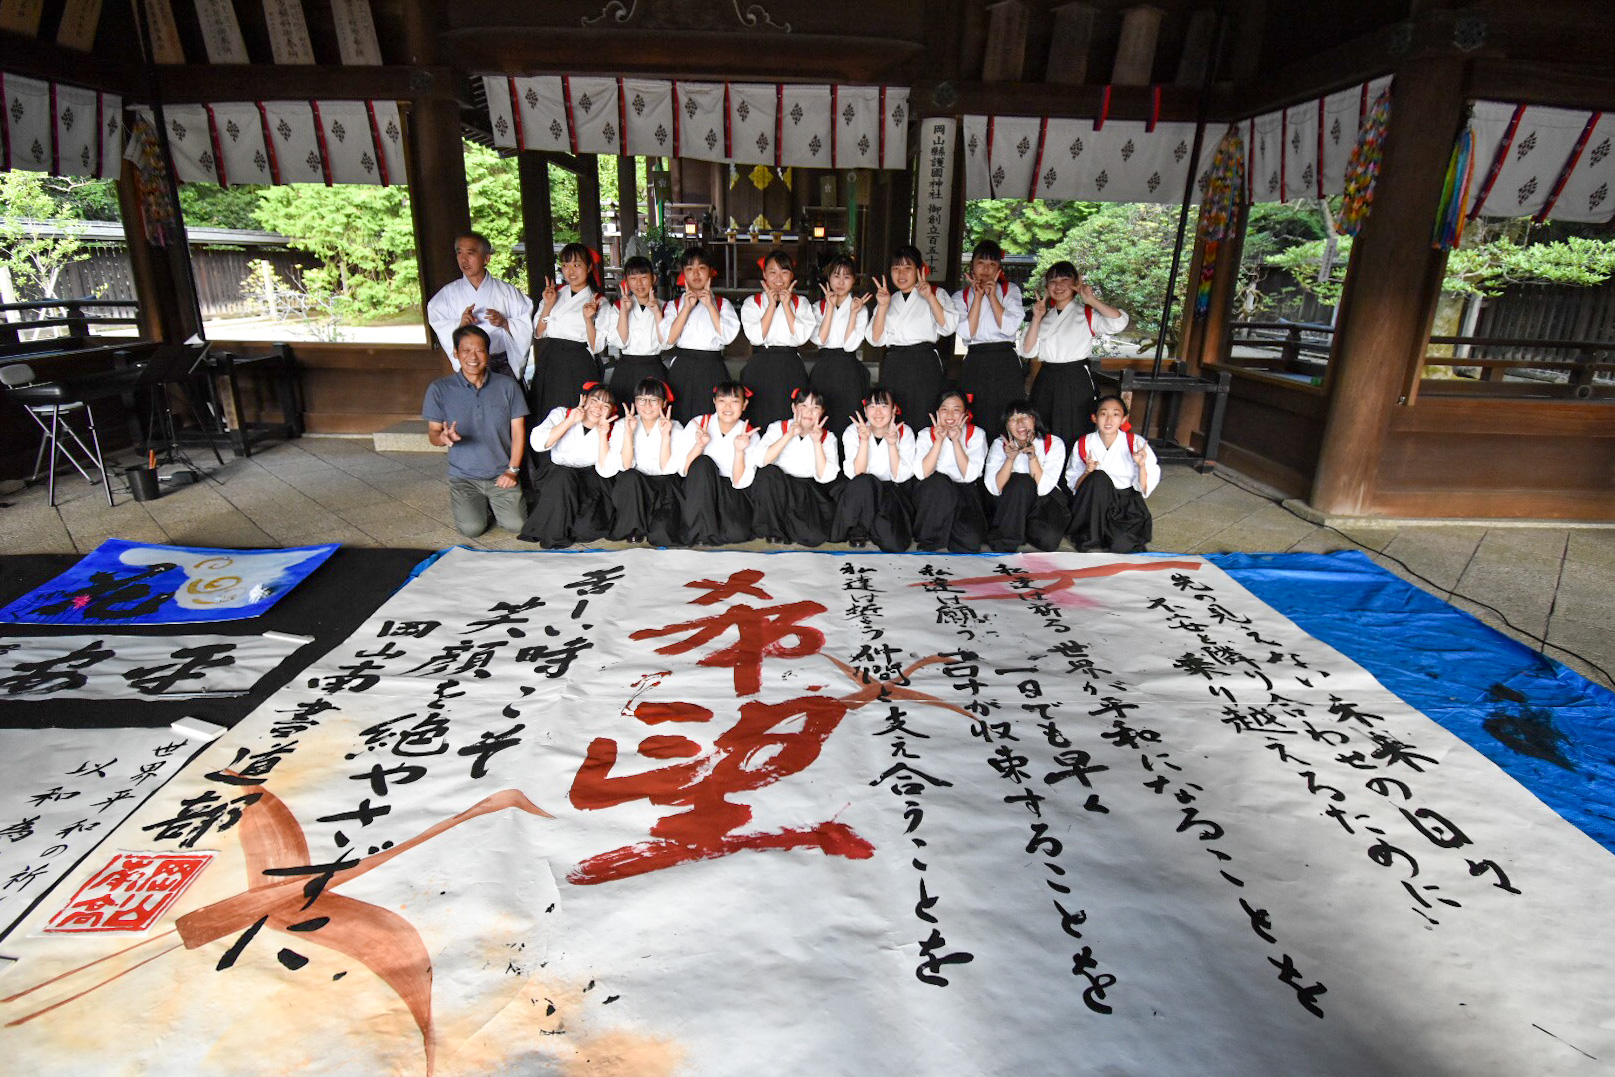 岡山縣護國神社 御創立百五十年
先の見えない未来の日々
不安を隣り合わせの
乗り越えるために…
私達は祈る 世界が平和になることを
私達は願う 一日でも早く
コロナが収束することを
私達は誓う 仲間と支え合うことを
希望
苦しい時こそ
笑顔を絶やさずに、
岡山南 書道部
平安
世界平和の祈
以和為